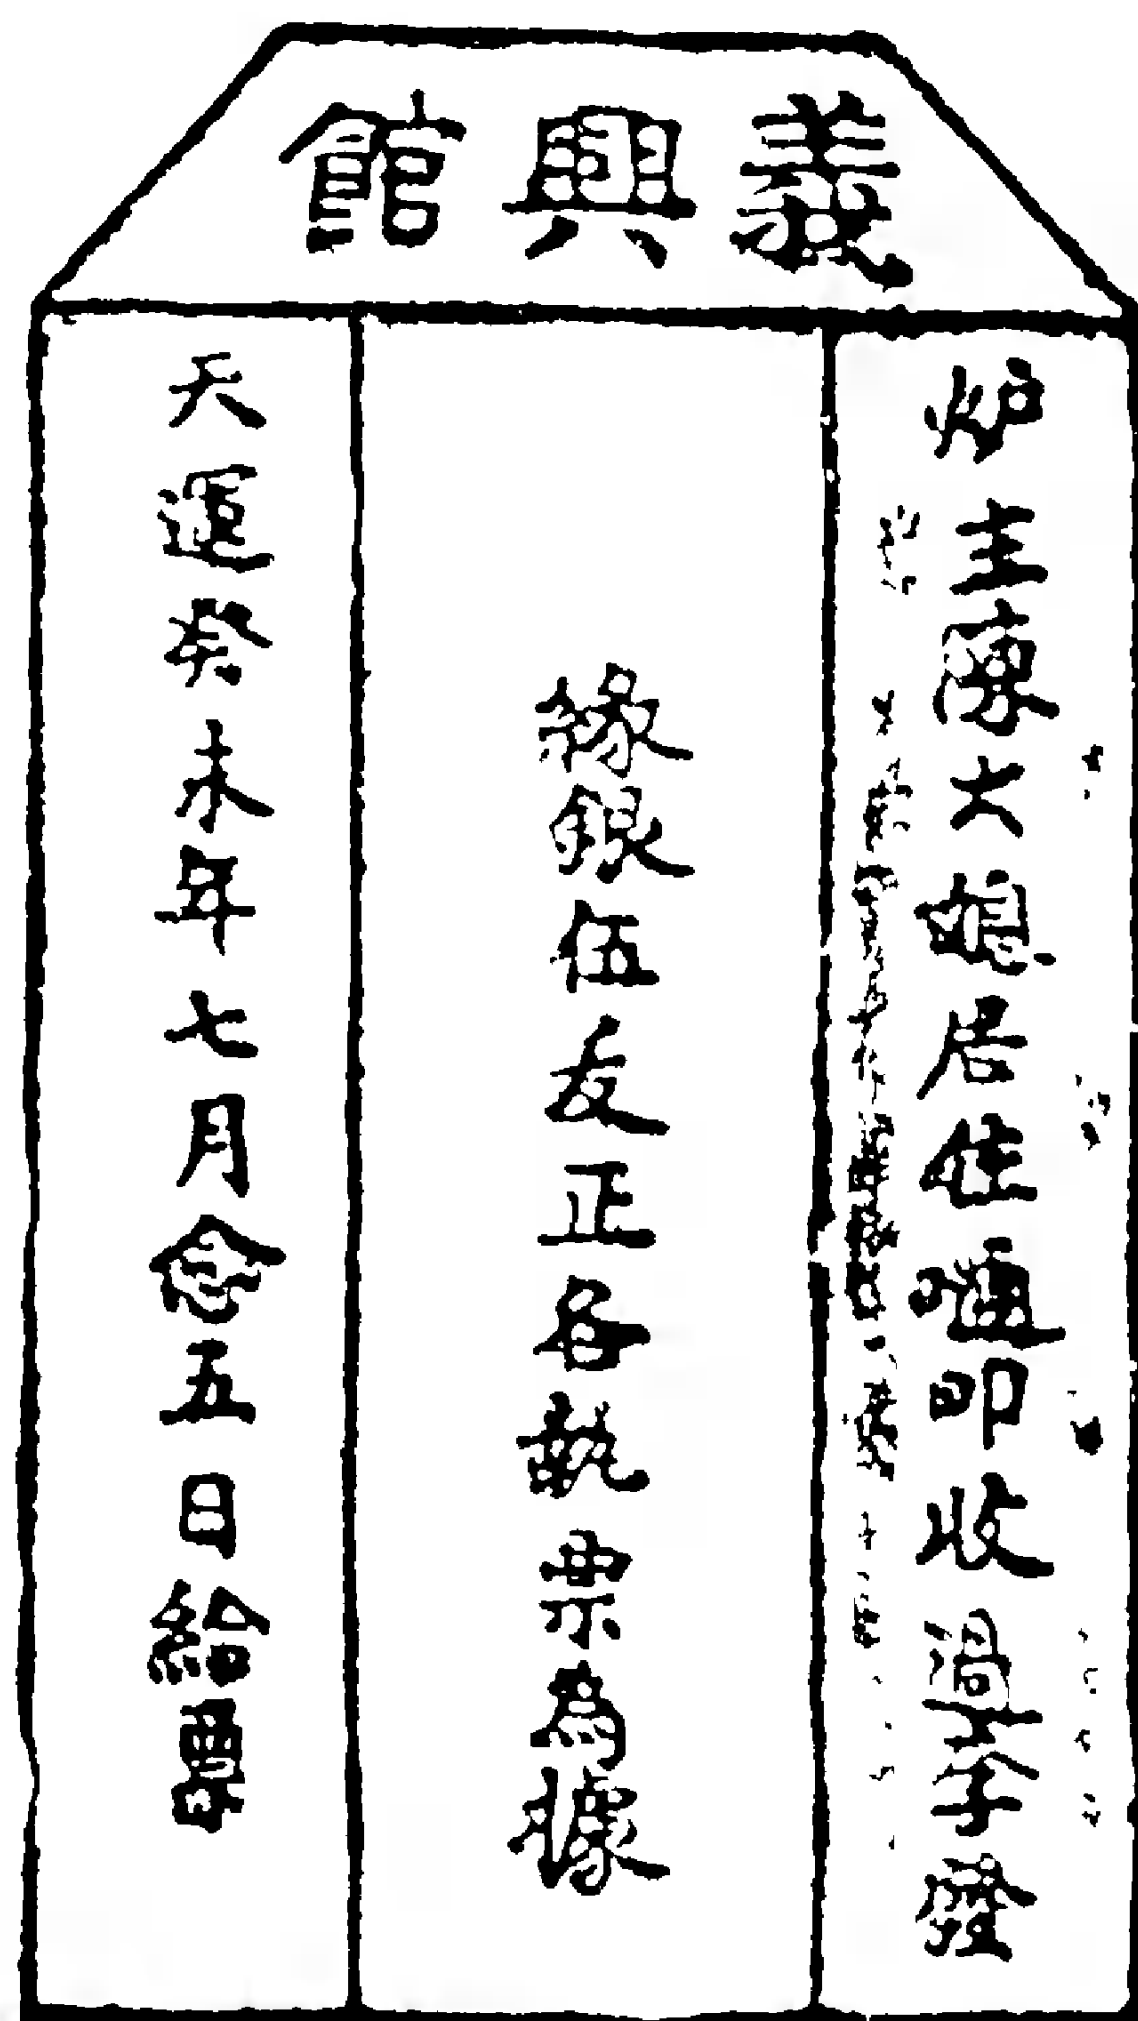 義興館
炉主陳大娘居住 叩收 李發
緣銀伍友正各執票為據
天運癸未年七月念五日給單